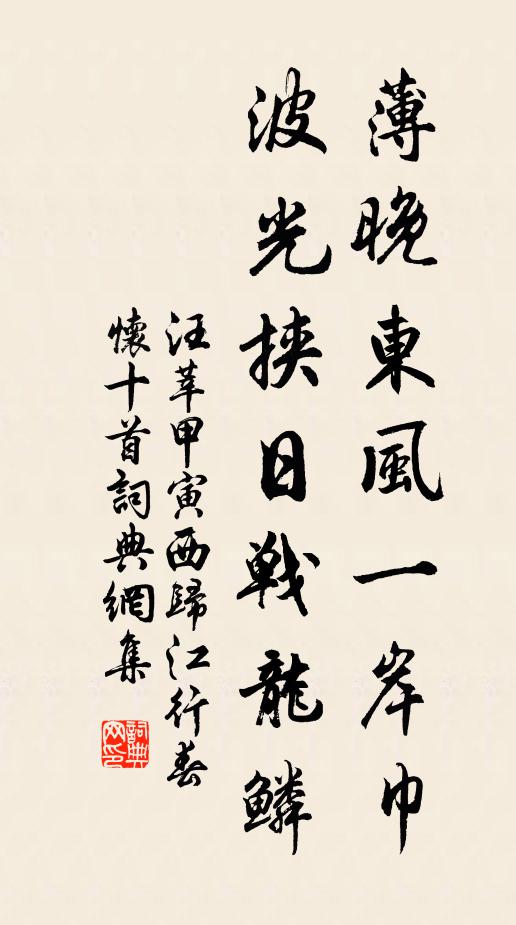 薄晚東風一岸巾
波光挾日戰龍鱗
汪莘甲寅西歸江行春
懷十首詞典網集
詞典
网印